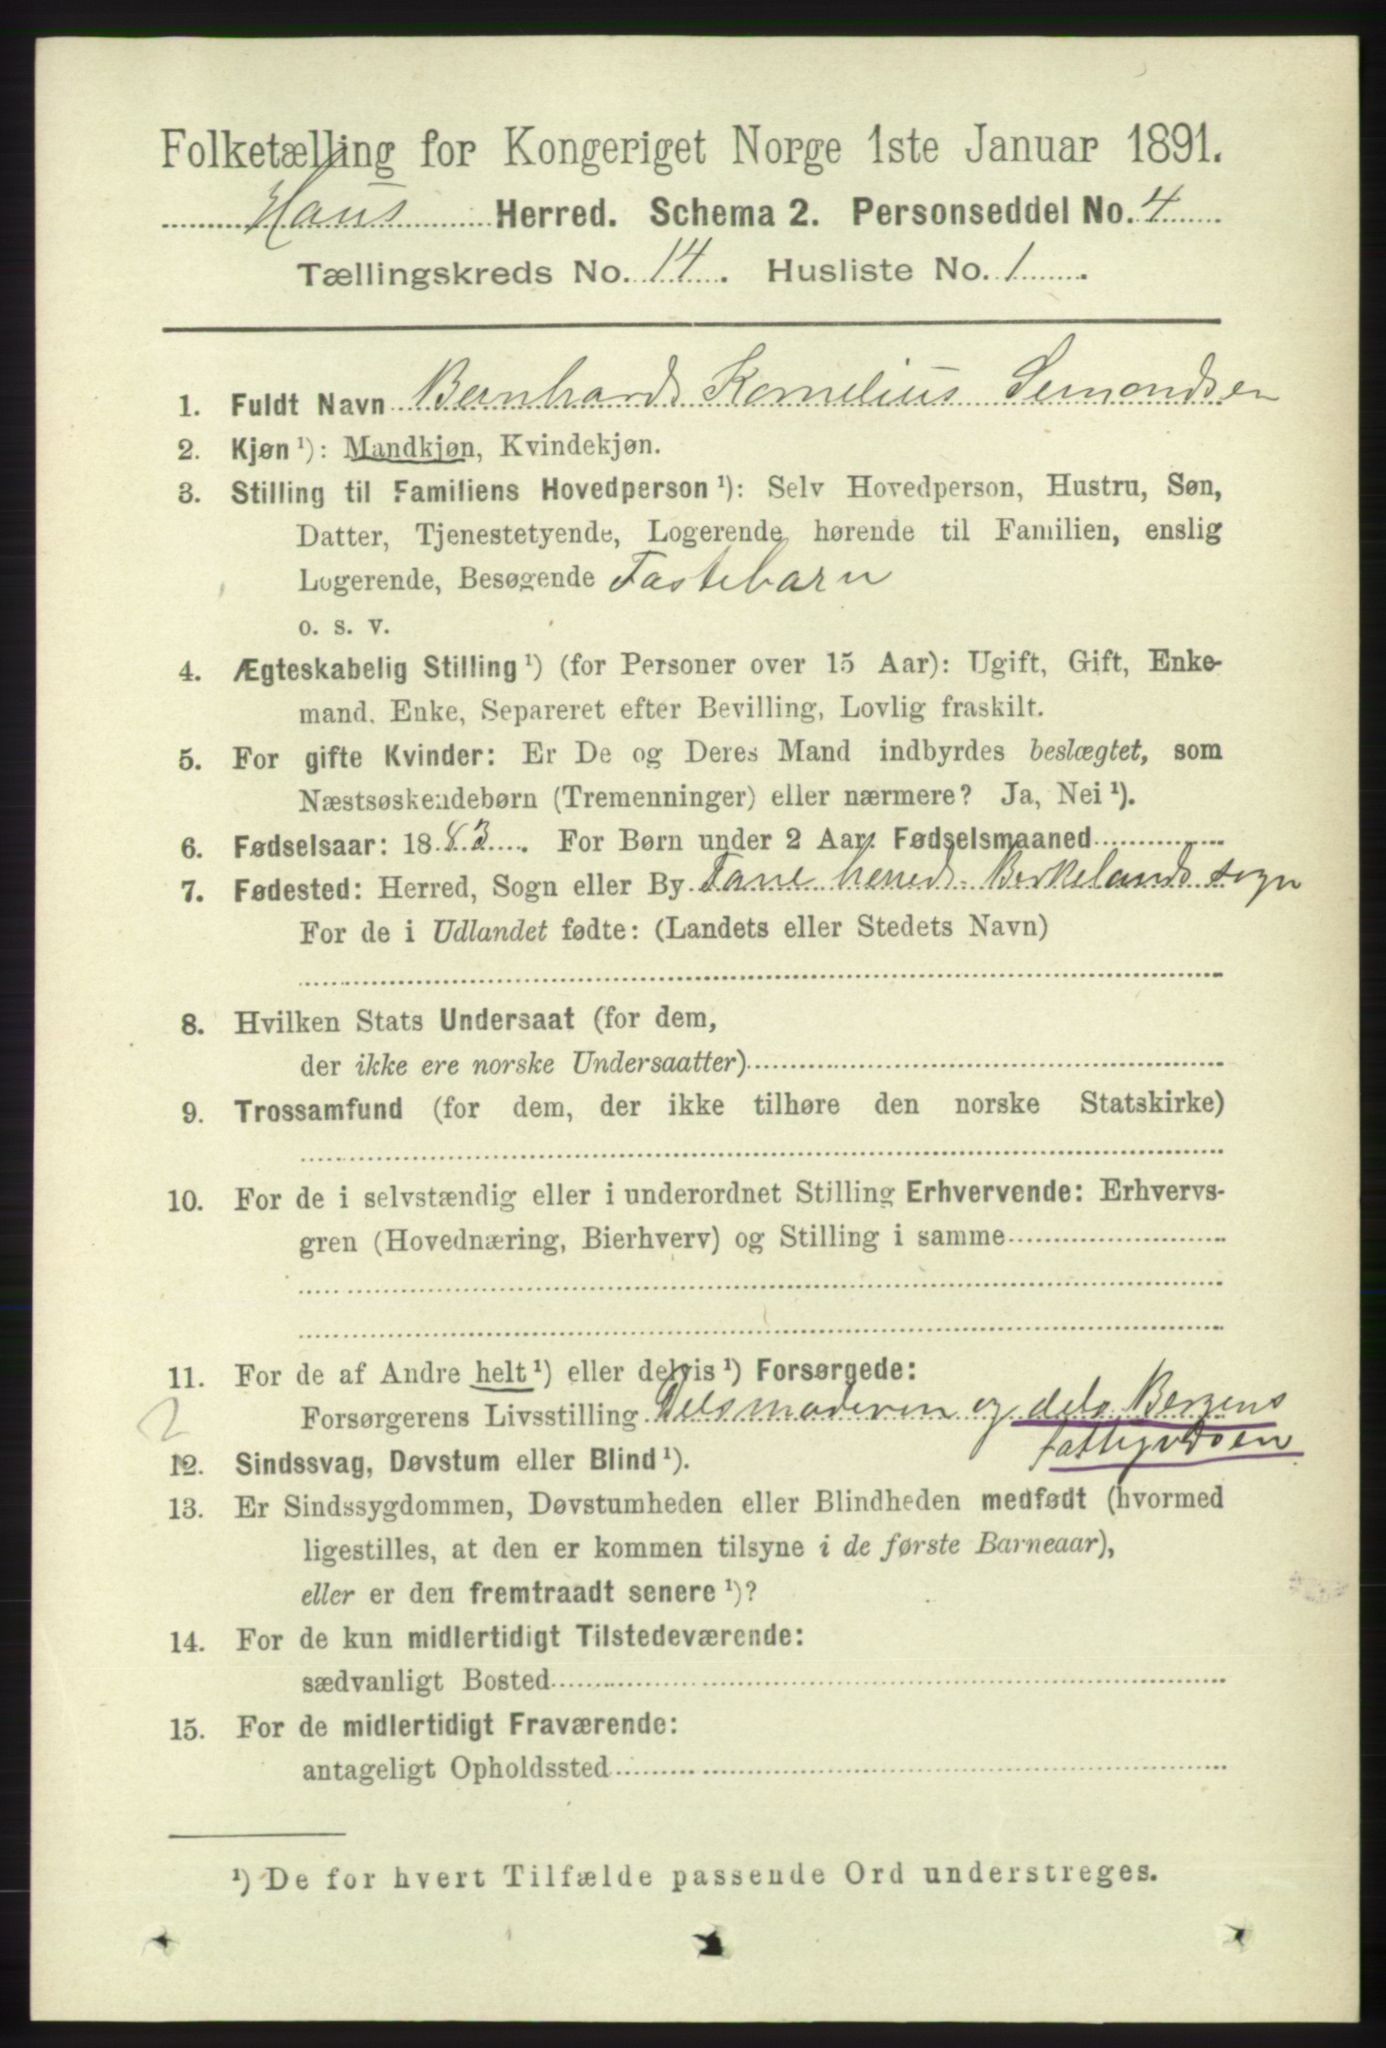 Folketælling for Kongeriget Norge 1ste Januar 1891.
Haus Herred. Schema 2. Personseddel No. 4
Tællingskreds No. 14. Husliste No. 1.
1. Fuldt Navn Bernhard Kornelius Semondsen
2. Kjøn ¹): Mandkjøn, Kvindekjøn.
3. Stilling til Familiens Hovedperson ¹): Selv Hovedperson, Hustru, Søn,
Datter, Tjenestetyende, Logerende hørende til Familien, enslig
Logerende, Besøgende Fostebarn
o. s. v.
4. Ægteskabelig Stilling ¹) (for Personer over 15 Aar): Ugift, Gift, Enke-
mand, Enke, Separeret efter Bevilling, Lovlig fraskilt.
5. For gifte Kvinder: Er De og Deres Mand indbyrdes beslægtet, som
Næstsøskendebørn (Tremenninger) eller nærmere? Ja, Nei ¹).
6. Fødselsaar: 1883. For Børn under 2 Aar: Fødselsmaaned
7. Fødested: Herred, Sogn eller By Fane herred Birkelands sogn
For de i Udlandet fødte: (Landets eller Stedets Navn)
8. Hvilken Stats Undersaat (for dem,
der ikke ere norske Undersaatter)
9. Trossamfund (for dem, der ikke tilhøre den norske Statskirke)
10. For de i selvstændig eller i underordnet Stilling Erhvervende: Erhvervs-
gren (Hovednæring, Bierhverv) og Stilling i samme
11. For de af Andre helt ¹) eller delvis ¹) Forsørgede:
Forsørgerens Livsstilling Dels moderen og dels Bergens
fattigvæsen
2
12. Sindssvag, Døvstum eller Blind ¹).
13. Er Sindssygdommen, Døvstumheden eller Blindheden medfødt (hvormed
ligestilles, at den er kommen tilsyne i de første Barneaar),
eller er den fremtraadt senere ¹)?
14. For de kun midlertidigt Tilstedeværende:
sædvanligt Bosted
15. For de midlertidigt Fraværende:
antageligt Opholdssted
¹) De for hvert Tilfælde passende Ord understreges.